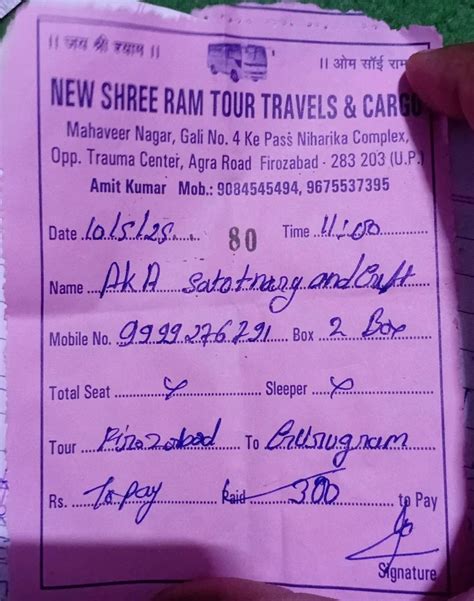 || जय श्री श्याम ||
|| ओम सॉई राम
NEW SHREE RAM TOUR TRAVELS & CARGO
Mahaveer Nagar, Gali No. 4 Ke Pass Niharika Complex,
Opp. Trauma Center, Agra Road Firozabad - 283 203 (U.P.)
Amit Kumar Mob.: 9084545494, 9675537395
Date 10/5/25 80 Time 11:00
Name AKA and
Mobile No. 9999276291 Box 2 Box
Total Seat x Sleeper x
Tour Firozabad To Gurugram
Rs. To pay Paid 300 to Pay
Signature